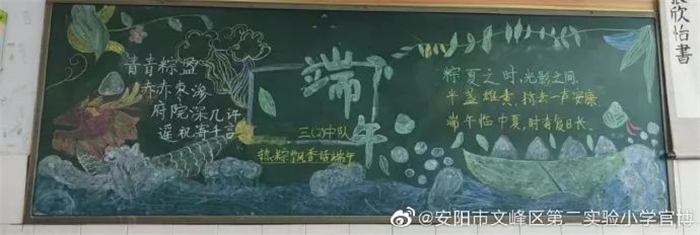 青青粽盈
赤赤枣溢
府院深几许
遥祝寄千言
端午
三(二)中队
艾粽飘香话端午
粽夏之时,光影之间,
平盏雄黄,捎去一声安康
端午临中夏,时清复日长。
欣怡書
@安阳市文峰区第二实验小学官博